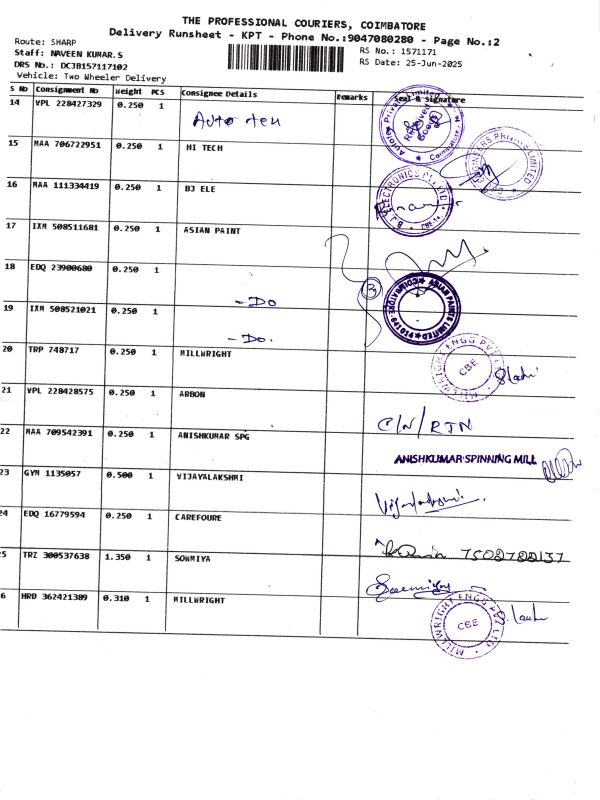 THE PROFESSIONAL COURIERS, COIMBATORE
Delivery Runsheet - KPT - Phone No.:9047080280 - Page No.:2
Route: SHARP
Staff: NAVEEN KUMAR.S
DRS No.: DCJB157117102
Vehicle: Two Wheeler Delivery
RS No.: 1571171
RS Date: 25-Jun-2025
S No Consignment No Weight PCS Consignee Details Remarks Seal & Signature
14 VPL 228427329 0.250 1 Auto teu
15 MAA 706722951 0.250 1 HI TECH
16 MAA 111334419 0.250 1 BJ ELE
17 IXM 508511681 0.250 1 ASIAN PAINT
18 EDQ 23900680 0.250 1 - DO
19 IXM 508521021 0.250 1 - Do.
ASIAN PAINTS LIMITED COIMBATORE-641014
20 TRP 748717 0.250 1 MILLWRIGHT
MILLWRIGHT ENGG PVT LTD CBE
21 VPL 228428575 0.250 1 ARBON C/N/RTN
22 MAA 709542391 0.250 1 ANISHKUMAR SPG
ANISHKUMAR SPINNING MILL
23 GYM 1135057 0.500 1 VIJAYALAKSHMI
24 EDQ 16779594 0.250 1 CAREFOURE 7502722137
5 TRZ 300537638 1.350 1 SOWMIYA
6 HRD 362421389 0.310 1 MILLWRIGHT
MILLWRIGHT ENGG PVT LTD CBE